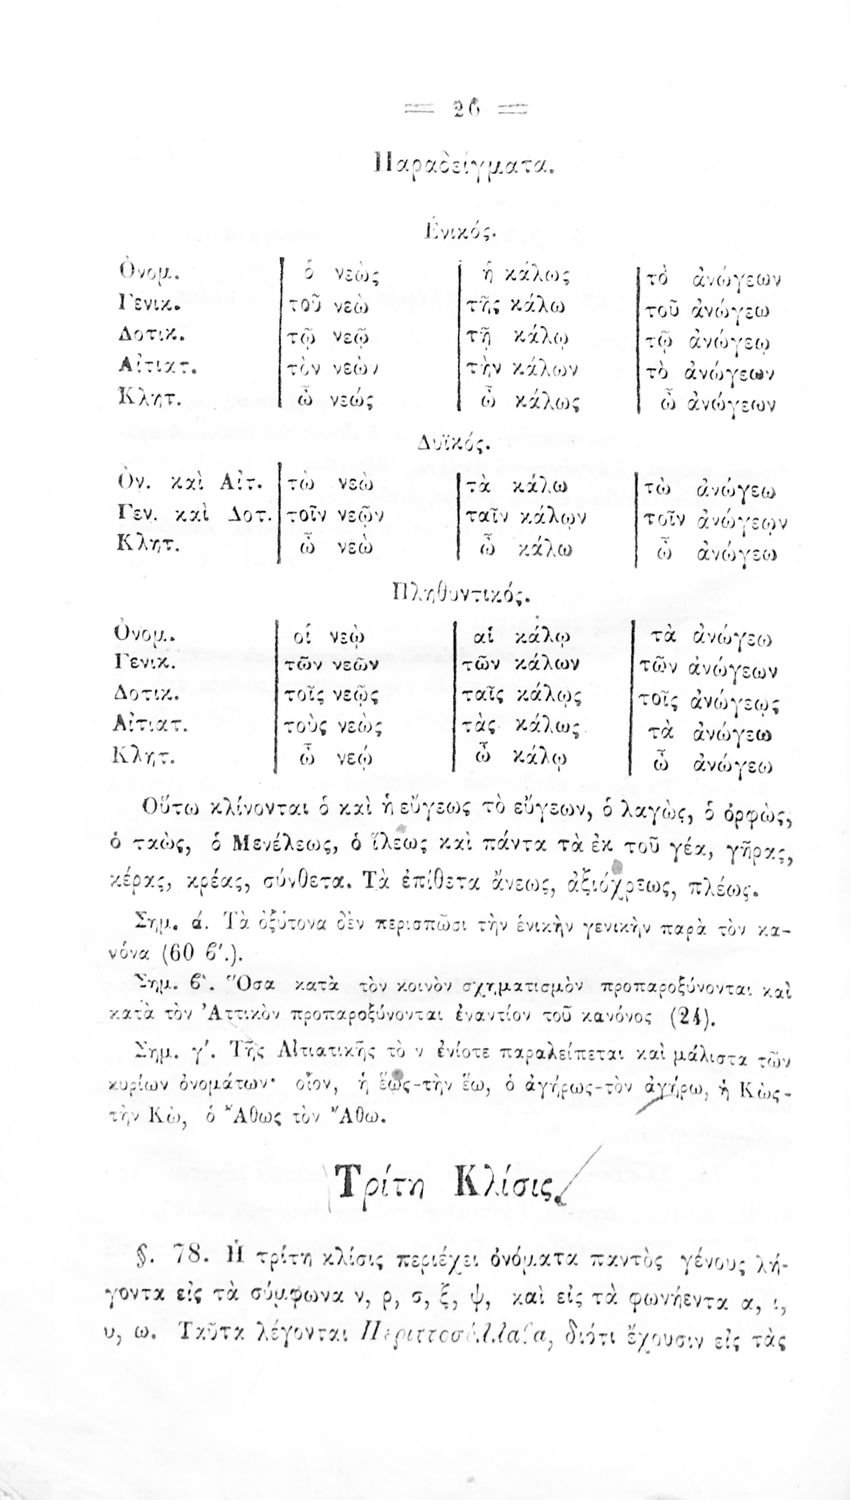 = 26 =
Παραδείγματα.
Ἑνικός.
Ὀνομ. ὁ νεὼς ἡ κάλως τὸ ἀνώγεων
Γενικ. τοῦ νεὼ τῆς κάλω τοῦ ἀνώγεω
Δοτικ. τῷ νεῷ τῇ κάλῳ τῷ ἀνώγεῳ
Αἰτιατ. τὸν νεὼν τὴν κάλων τὸ ἀνώγεων
Κλητ. ὦ νεώς ὦ κάλως ὦ ἀνώγεων
Δυϊκός.
Ὀν. καὶ Αἰτ. τὼ νεὼ τὰ κάλω τὼ ἀνώγεω
Γεν. καὶ Δοτ. τοῖν νεῷν ταῖν κάλῳν τοῖν ἀνώγεῳν
Κλητ. ὦ νεὼ ὦ κάλω ὦ ἀνώγεω
Πληθυντικός.
Ὀνομ. οἱ νεῲ αἱ κάλῳ τὰ ἀνώγεω
Γενικ. τῶν νεῶν τῶν κάλων τῶν ἀνώγεων
Δοτικ. τοῖς νεῷς ταῖς κάλῳς τοῖς ἀνώγεῳς
Αἰτιατ. τοὺς νεὼς τὰς κάλως τὰ ἀνώγεω
Κλητ. ὦ νεῴ ὦ κάλῳ ὦ ἀνώγεω
Οὕτω κλίνονται ὁ καὶ ἡ εὔγεως τὸ εὔγεων, ὁ λαγὼς, ὁ ὀρφὼς,
ὁ ταὼς, ὁ Μενέλεως, ὁ ἵλεως καὶ πάντα τὰ ἐκ τοῦ γέα, γῆρας,
κέρας, κρέας, σύνθετα. Τὰ ἐπίθετα ἄνεως, ἀξιόχρεως, πλέως.
Σημ. ά. Τὰ ὀξύτονα δὲν περισπῶσι τὴν ἑνικὴν γενικὴν παρὰ τὸν κα-
νόνα (60 ϐ΄.).
Σημ. ϐ΄. Ὅσα κατὰ τὸν κοινὸν σχηματισμὸν προπαροξύνονται καὶ
κατὰ τὸν Ἀττικὸν προπαροξύνονται ἐναντίον τοῦ κανόνος (24).
Σημ. γ΄. Τῆς Αἰτιατικῆς τὸ ν ἐνίοτε παραλείπεται καὶ μάλιστα τῶν
κυρίων ὀνομάτων· οἷον, ἡ ἕως-τὴν ἕω, ὁ ἀγήρως-τὸν ἀγήρω, ἡ Κὼς-
τὴν Κὼ, ὁ Ἄθως τὸν Ἄθω.
Τρίτη Κλίσις.
§. 78. Ἡ τρίτη κλίσις περιέχει ὀνόματα παντὸς γένους λή-
γοντα εἰς τὰ σύμφωνα ν, ρ, σ, ξ, ψ, καὶ εἰς τὰ φωνήεντα α, ι,
υ, ω. Ταῦτα λέγονται Περιττοσύλλαβα, διότι ἔχουσιν εἰς τὰς